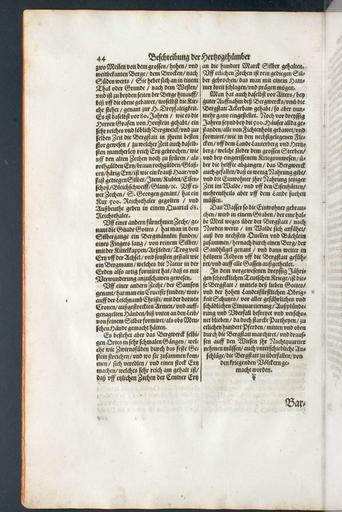 44
Beschreibung der Hertzogthümber
zwo Meilen von dem grossen / hohen / und
weitbekanten Berge / dem Brocken / nach
Süden werts / Sie liehet sich an in einem
Thal oder Grunde / nach dem Westen /
und ist zu beyden seiten der Berge hinauff
biß uff die ebene gebawet / woselbst die Kir-
che stehet / genant zur H. Dreyfaltigkeit.
Es ist daselbst vor 60. Jahren / wie es die
Herren Grafen von Honstein gehabt / ein
sehr reiches und löblich Bergwerck / und zur
selben Zeit die Bergstadt in ihrem besten
flor gewesen / zu welcher Zeit auch dasel-
sten unterschiedlich reich Ertz gebrochen / wie
uff den alten Zechen noch zu spüren / als
rothgülden Ertz / braun rothgülden / Glaß-
ertz / härig Ertz / ist wie ein krauß Haar / und
fast gediegen Silber / Item / Kobies / Glän-
schos / Bleichschweiff / Glantz / etc. Uff ei-
ner Zechen / S. Georgen genant / hat ein
Kux 700. Reichsthaler gegolten / und
Außbeuthe geben in einem Quartal 16.
Reichsthaler.
Uff einer andern fürnehmen Zeche / ge-
nant die Gnade Gottes / hat man in dem
Silbergange ein Bergmännlin funden /
eines Fingers lang / von reinem Silber /
mit der Kittelkappen / Arßleder / Trog voll
Ertz uff der Achsel / und sonsten gestalt wie
ein Bergmann / welches die Natur in der
Erden also artig formiret hat / daß es mit
Verwunderung anzuschawen gewesen.
Uff einer andern Zeche / der Samson
genant / hat man ein Crucifix funden / wor-
auff der Leichnamb Christi / mit der dornen
Cronen / außgestreckten Armen / und auff
genagelten Händen / biß unten an den Leib /
von feinem Silber formiret / als obs Men-
schen Hände gemacht hätten.
Es bestehet aber das Bergwerck selbi-
gen Ortes in sehr schmalen Gängen / wel-
che wie Zwirnsfäden durch das feste Ge-
stein streichen / und wo sie zusammen kom-
men / sich vereedlen / und einen stock Ertz
machen / welches sehr reich am gehalt ist /
daß uff etzlichen Zechen der Centner Ertz
an die hundert Marck Silber gehalten.
Uff etlichen Zechen ist rein gediegen Sil-
ber gebrochen / das man mit einem Ham-
mer breit schlagen / und prägen mögen.
Man hat auch daselbst vor Alters / bey
guter Auffnahm deß Bergwercks / und die
Bergstatt Ackerbaw gehabt / so aber nun-
mehr gantz eingestellet. Noch vor dreyssig
Jahren seynd bey die 500. Häuser alda ge-
standen / alle von Fichtenholtz gebawet / und
formiret / wie in den nechstgelegenen Fle-
cken / uff dem Lande Lauterberg und Hertz-
berg / welche sieder dem grossen Sterben /
und bey eingerissenem Kriegsunwesen / ü-
ber die helffte abgangen / das Bergwerck
auch gefallen / daß es wenig Nahrung gibt /
und die Einwohner ihre Nahrung jeniger
Zeit im Walde / und uff den Eisenhütten /
mehrentheils aber uff dem Lande suchen
müssen.
Das Wasser so die Einwohner gebrau-
chen / wird in einem Graben / der eine hal-
be Meil weges über der Bergstatt / nach
Norden werts / im Walde sich anfähet /
auß den nechsten Quellen und Bächlein
zusammen / hernach durch einen Berg / der
Sandhügel genant / und dann weiter in
höltzern Röhren uff die Bergstatt gefüh-
ret / und auff alle Gassen außgetheilet.
In dem vorgewesenen dreyssig Jähri-
gen schädlichen Teutschen Krieger / ist die-
se Bergstatt / mittels deß lieben Gottes /
und der hohen Landesfürstlichen Obrig-
keit Schutzes / vor aller gefährlichen und
schädlichen Einquartierung / Außplünde-
rung und Uberfall befreyet und verscho-
net blieben / da doch starcke Partheyen / zu
etlichen hundert Pferden / mitten und oben
durch die Bergstatt marchiret / und drauf-
sen auff den Wiesen ihr Nachtquartier
nehmen müssen / auch unterschiedliche An-
schläge / die Bergstatt zu überfallen / von
den kriegenden Völckern ge-
macht worden.
Bar-